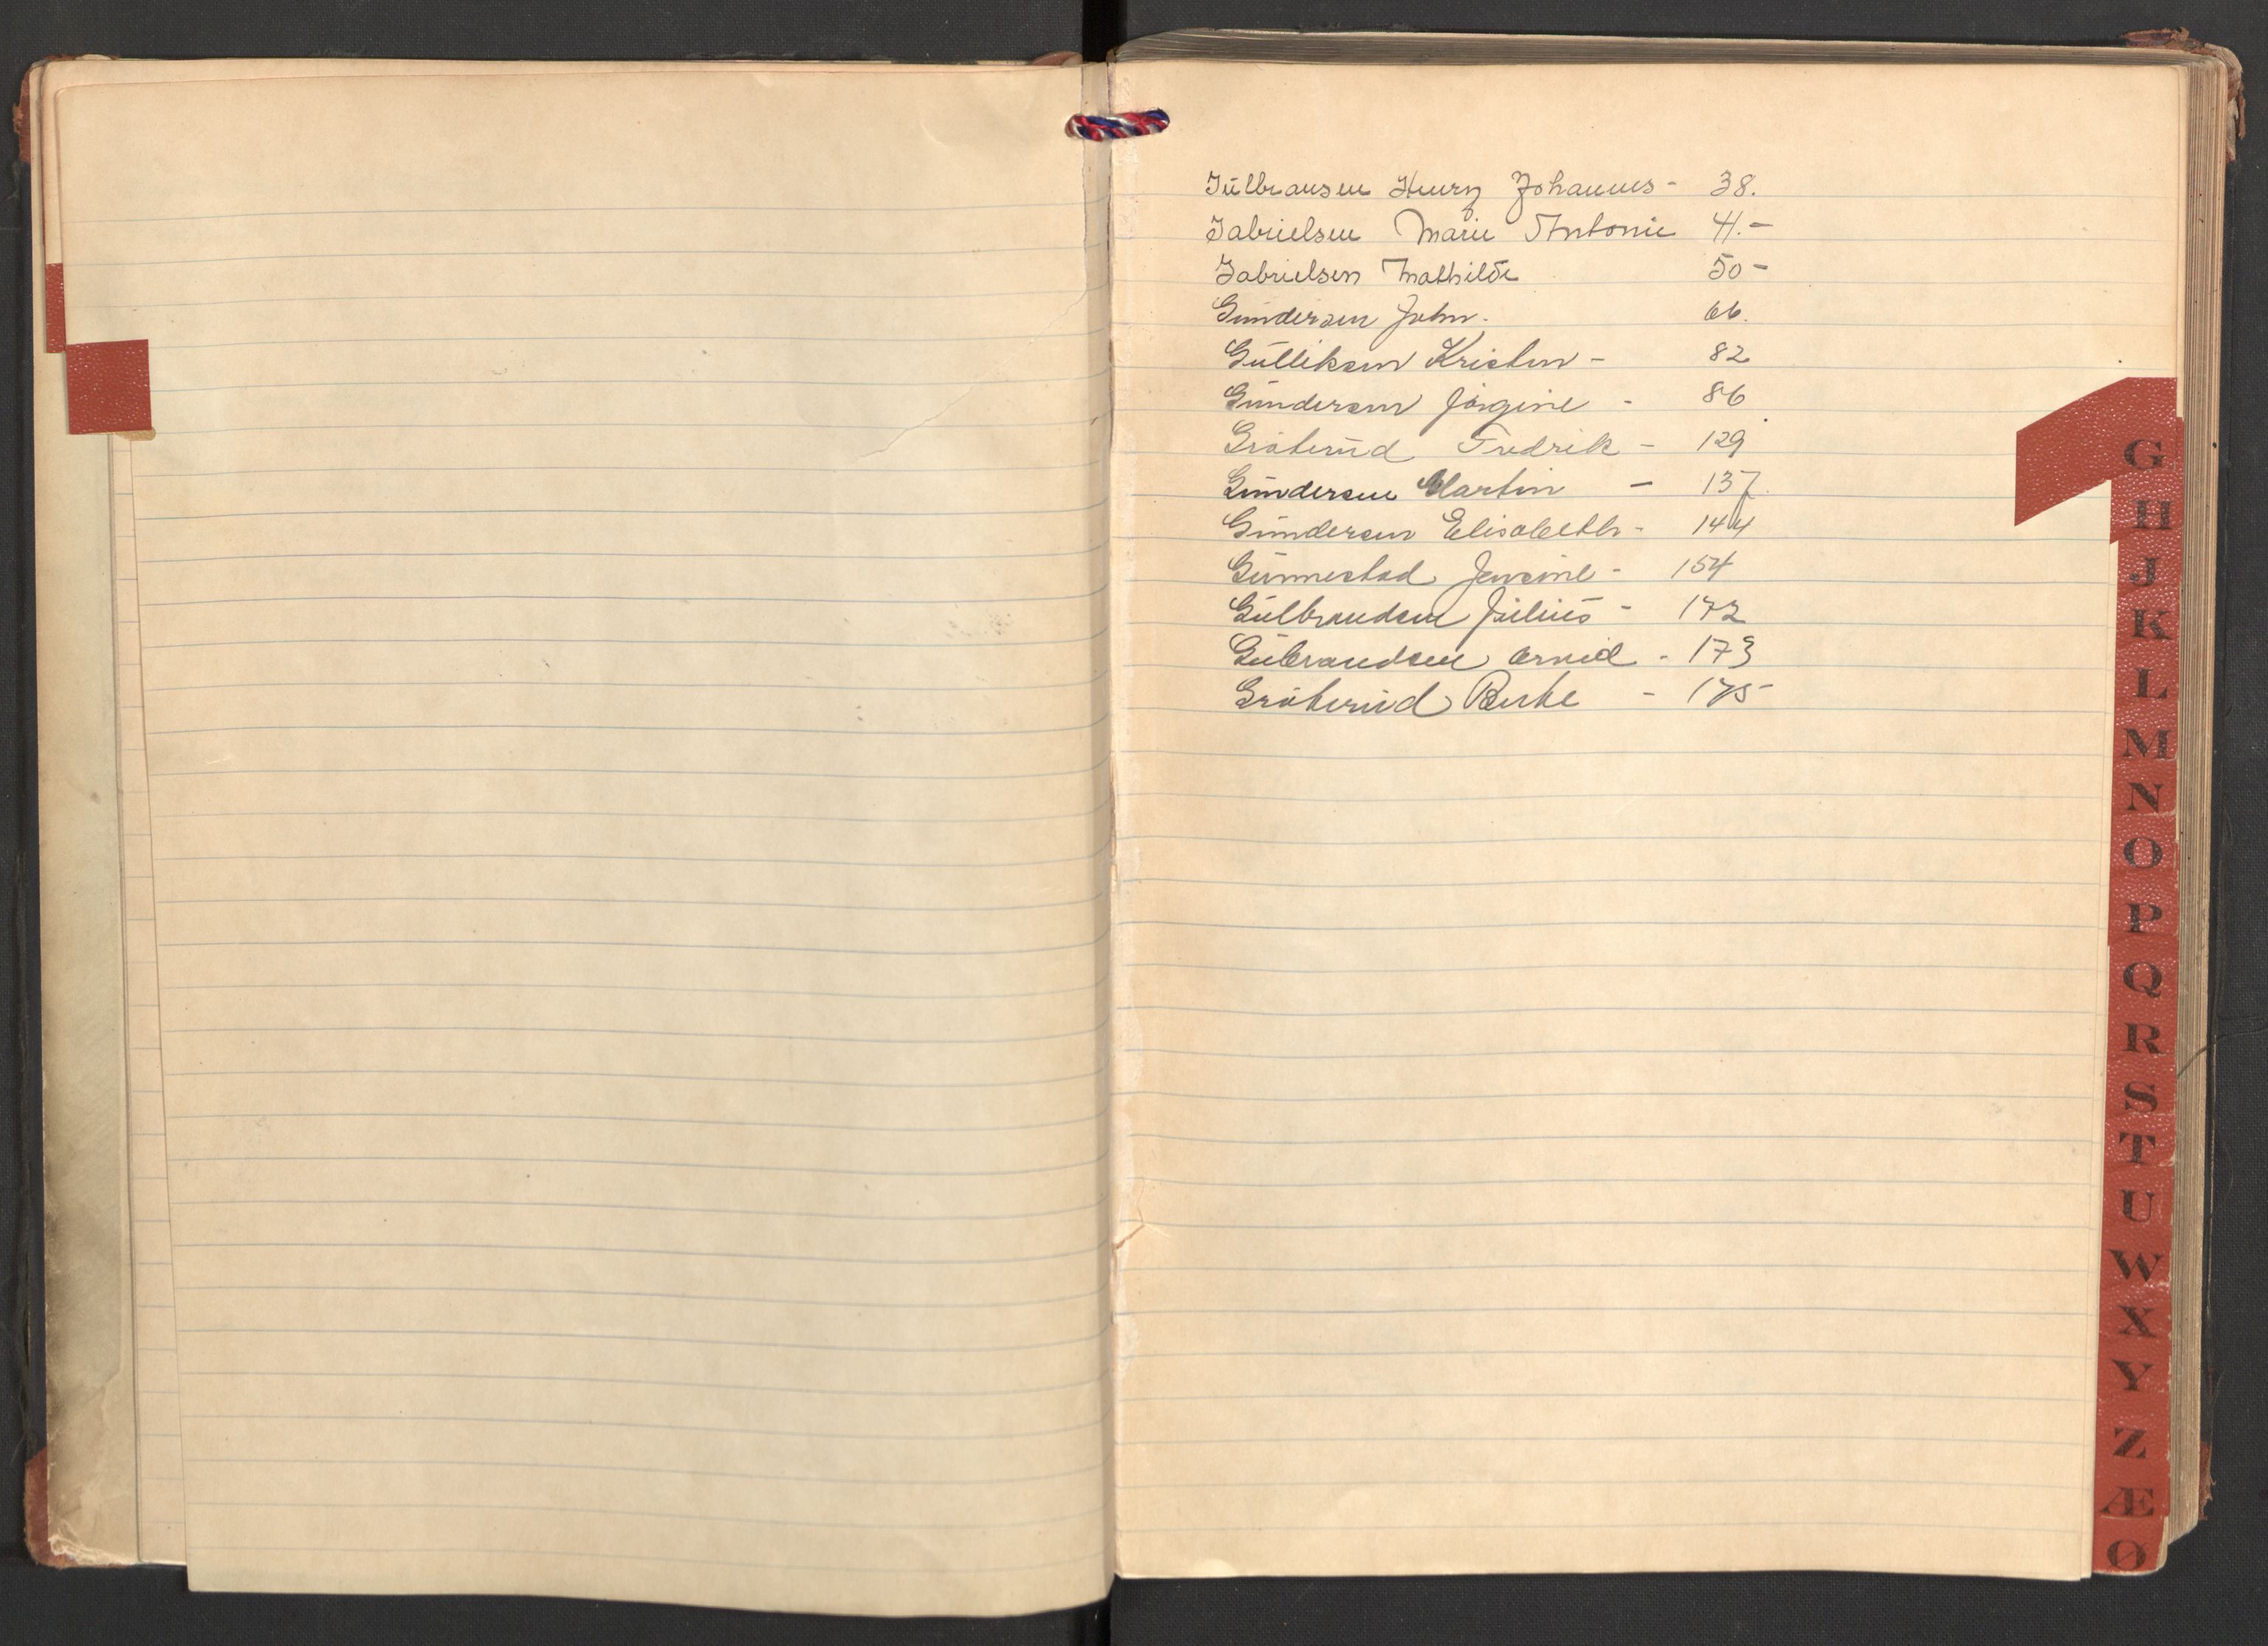 Gulbransen Henry Johannes - 38.
Gabrielsen Marie Antonie 41.-
Gabrielsen Mathilde 50-
Gundersen John. 66.
Gulliksen Kristen - 82
Gundersen Jørgine - 86
Gråterud Fredrik - 129
Gundersen Martin - 137.
Gundersen Elisabeth - 144
Gunnestad Jensine - 154
Gulbrandsen Julius - 172
Gulbrandsen Arvid - 173
Gråterud Berte - 175
G
H
J
K
L
M
N
O
P
Q
R
S
T
U
W
X
Y
Z
Æ
Ø